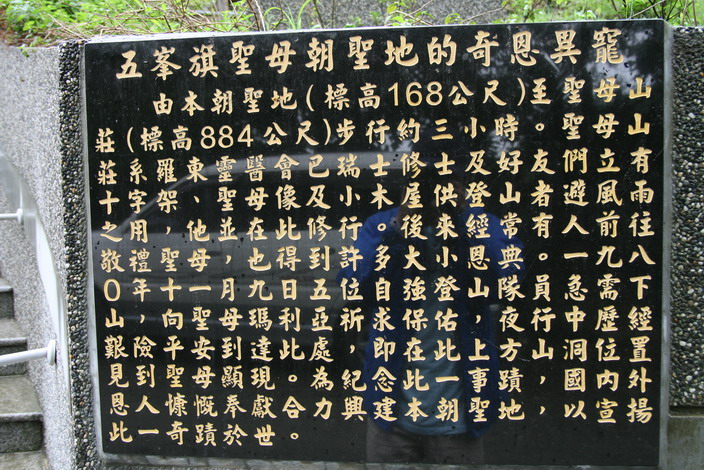 五峯旗聖母朝聖地的奇恩異寵
由本朝聖地(標高168公尺)至聖母山
莊(標高884公尺)步行約三小時。聖母山
莊系羅東靈醫會已瑞士修士及好友們立有
十字架、聖母像及小木屋供登山者避風雨
之用,他並在此修行。後來經常有人前往
敬禮聖母,也得到許多大小恩典。一九八
0年十一月九日五位自強登山隊員急需下
山,向聖母瑪利亞祈求保佑,夜行中歷經
艱險平安到達此處即在此上方山洞位置
見到聖母顯現。為紀念此一事蹟,國內外
恩人慷慨奉獻合力興建本朝聖地,以宣揚
此一奇蹟於世。